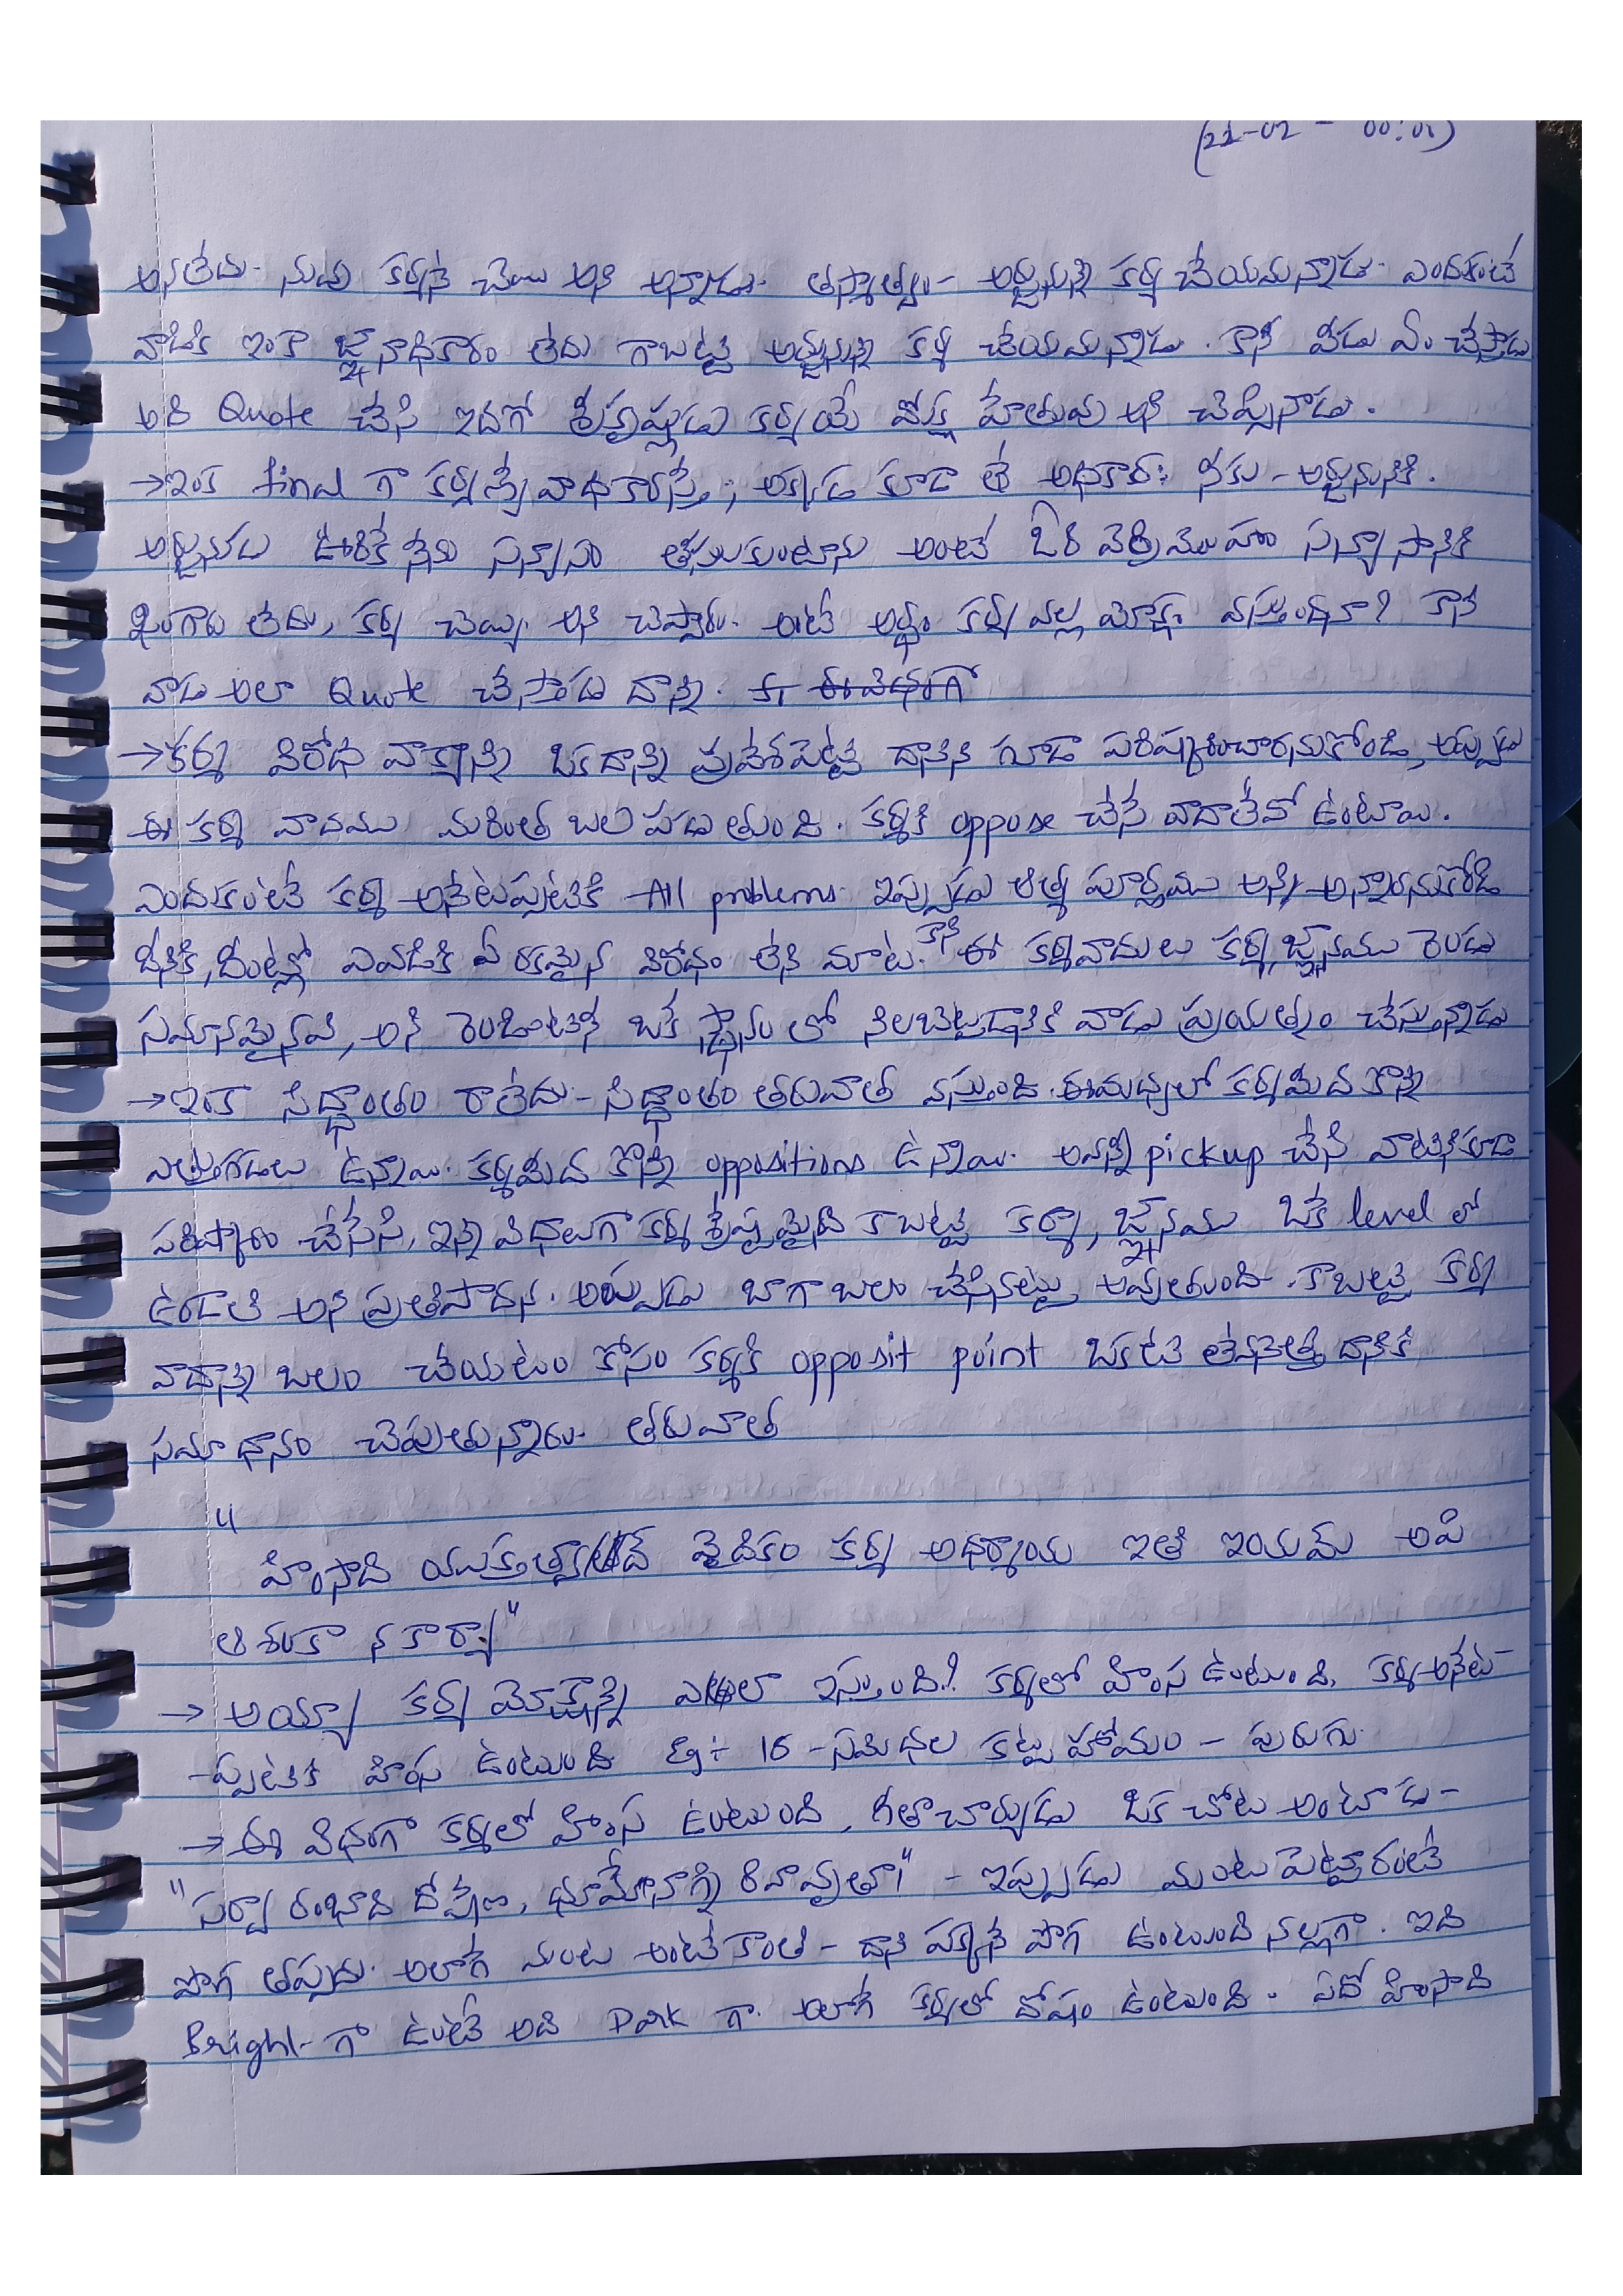 (21-02 - 00:01)
అనలేదు. నువ్వు కర్మనే చెయి అని అన్నాడు. తస్మాత్వం - అర్జునున్ని కర్మ చేయమన్నాడు. ఎందుకంటే
వాడికి ఇంకా జ్ఞానాధికారం లేదు గాబట్టి అర్జునున్ని కర్మ చేయమన్నాడు. కానీ వీడు ఏం చేస్తాడు
అది Quote చేసి ఇదిగో శ్రీకృష్ణుడు కర్మయే మోక్ష హేతువు అని చెప్పినాడు.
→ ఇంక final గా కర్మణ్యే వాధికారస్తే; అక్కడ కూడా తే అధికారః నీకు - అర్జునునికి.
అర్జునుడు ఊరికే నేను సన్యాసం తీసుకుంటాను అంటే ఓరి వెర్రిమొహం సన్యాసానికి
శృంగారు లేదు, కర్మ చెయ్యి అని చెప్పారు. అంటే అర్థం కర్మ వల్ల మోక్షం వస్తుందనా? కానీ
వాడు అలా Quote చేస్తాడు దాన్ని.
→ కర్మ విరోధ వాక్యాన్ని ఒకదాన్ని ప్రవేశపెట్టి దానిని గూడా పరిష్కరించారనుకోండి, అప్పుడు
ఈ కర్మ వాదము మరింత బల పడుతుంది. కర్మకి oppose చేసే వాదాలేవో ఉంటాయి.
ఎందుకంటే కర్మ అనేటప్పటికి All problems. ఇప్పుడు ఆత్మ పూర్ణము అన్ని అన్నారనుకోండి
దీనికి, దీంట్లో ఎవడికి ఏ రకమైన విరోధం లేని మాట. కానీ ఈ కర్మవాదులు కర్మ, జ్ఞానము రెండు
సమానమైనవి, అని రెండింటినీ ఒకే స్థానంలో నిలబెట్టడానికి వాడు ప్రయత్నం చేస్తున్నాడు
→ ఇంక సిద్ధాంతం రాలేదు - సిద్ధాంతం తరువాత వస్తుంది. ఈమధ్యలో కర్మమీద కొన్ని
ఎత్తుగడలు ఉన్నాయి. కర్మమీద కొన్ని oppositions ఉన్నాయి. అవన్నీ pickup చేసి వాటినికూడా
పరిష్కారం చేసేసి, ఇన్ని విధాలుగా కర్మ శ్రేష్ఠమైనది కాబట్టి కర్మా, జ్ఞానము ఒకే level లో
ఉండాలి అని ప్రతిపాదన. అప్పుడు బాగా బలం చేసినట్టు అవుతుంది. కాబట్టి కర్మ
వాదాన్ని బలం చేయటం కోసం కర్మకి opposit point ఒకటి లేవనెత్తి దానికి
సమాధానం చెపుతున్నారు. తరువాత
"
హింసాది యుక్తత్వాత్ వైదికం కర్మ అధర్మాయ ఇతి ఇయమ్ అపి
ఆశంకా న కార్యా"
→ అయ్యా కర్మ మోక్షాన్ని ఎలా ఇస్తుంది? కర్మలో హింస ఉంటుంది. కర్మ అనేట-
-ప్పటికి హింస ఉంటుంది Eg:- 16 - సమిధల కట్ట హోమం - పురుగు.
→ ఈ విధంగా కర్మలో హింస ఉంటుంది, గీతాచార్యుడు ఒక చోట అంటాడు -
"సర్వారంభాది దోషేణ, ధూమేనాగ్ని రివావృతాః" - ఇప్పుడు మంట పెట్టారంటే
పొగ తప్పదు. అలాగే మంట అంటే కాంతి - దాని పక్కనే పొగ ఉంటుంది నల్లగా. ఇది
Bright-గా ఉంటే అది Dark గా. అలాగే కర్మలో దోషం ఉంటుంది. ఏదో హింసాది